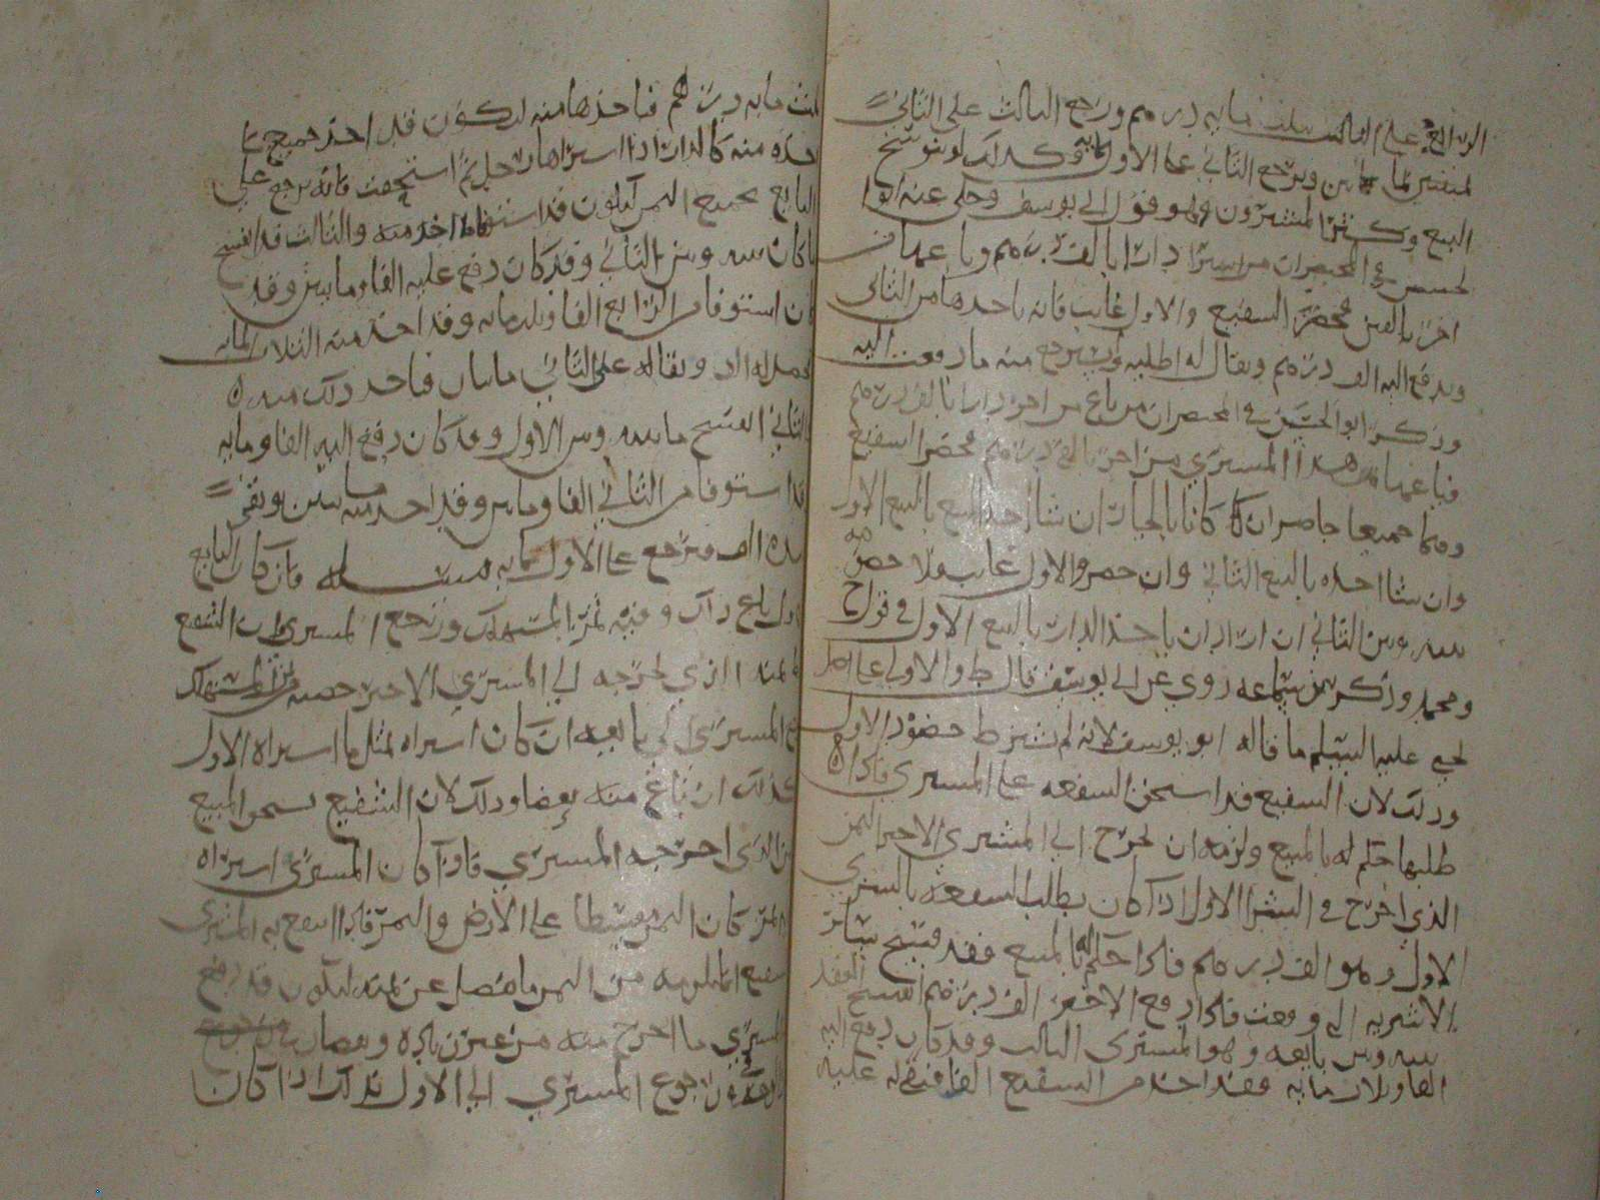 الرابع على الثالث بثلث مايه درهم ورجع الثالث على الثاني
بمايتين ويرجع الثاني على الاول بمايه وكذلك لو تنوسخ
البيع وكثر المشترون وهو قول ابي يوسف وحكى عنه ابو
الحسن في المختصر ان من اشترا دارا بالف درهم وباعها من
اخر بالفين فحضر الشفيع والاول غايب فانه ياخذها من الثاني
ويدفع اليه الف درهم ويقال له اطلبه ويرجع منه ما دفعت اليه
وذكر ابو الحسن في المختصر ان من باع من اخر دارا بالف درهم
فباعها هذا المشتري من اخر بالفي درهم فحضر الشفيع
وهما جميعا حاضران كان بالخيار ان شا اخذ المبيع بالبيع الاول
وان شا اخذه بالبيع الثاني وان حضر والاول غايب فلا خصومه
بينه وبين الثاني ان اراد ان ياخذ الدار بالبيع الاول في قول ح
ومحمد وذكر بن سماعه روي عن ابي يوسف قال ط والاولى على اصل
يحيى عليه السلم ما قاله ابو يوسف لانه لم يشترط حضور الاول
وذلك لان الشفيع قد استحق الشفعه على المشتري فاذا
طلبها حكم له بالمبيع ولزمه ان يخرج الي المشتري الاخير الثمن
الذي اخرج في الشرا الاول اذا كان يطلب الشفعه بالشرى
الاول وهو الف درهم فاذا حكم له بالمبيع فقد فسخ ساير
الاشريه التي وقعت فاذا دفع الاخير الف درهم انفسخ العقد
بينه وبين بايعه وهو المشتري الثالث وقد كان دفع اليه
الفا وثلاث مايه فقد اخذ من الشفيع الفا فبقي له عليه
ثلث مايه درهم فاخذها منه لتكون قد اخذ جميع ما
اخذه منه كالدار اذا اشتراها رجل ثم استحقت فانه يرجع على
البايع بجميع الثمن لكون قد استوفا ما اخذ منه والثالث قد انفسخ
ما كان بينه وبين الثاني وقد كان دفع عليه الفا ومايتين وقد
كان استوفا من الرابع الفا وثلث مايه وقد اخذ منه الثلاث المايه
فحصل له الف وبقا له على الثاني مايتان فاخذ ذلك منه
والثاني انفسخ ما بينه وبين الاول وقد كان دفع اليه الفا ومايه
قد استوفا من الثاني الفا ومايتين وقد اخذ منه مايتين وبقى
بيده الف فيرجع على الاول بمايه مسئله فان كان البايع
الاول باع ذلك وفيه ثمر استهلك ورجع المشتري ان الشفيع
ثمنه الذي يخرجه الي المشتري الاخير حصه ثمن المستهلك
المشتري الي بايعه ان كان اشتراه بمثل ما اشتراه الاول
كذلك ان باع منه بعضا وذلك لان الشفيع يستحق المبيع
الذي اخرجه المشتري فاذا كان المشتري اشتراه
الثمر كان الثمن مقسطا على الارض والثمر فاذا انتفع به المشتري
الشفيع ما يلزمه من الثمن ما فضل عن ثمنه ليكون قد دفع
المشتري ما اخرج منه من غير زياده ونقصان
رجوع المشتري الي الاول بذلك اذا كان